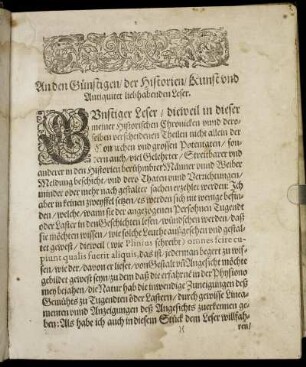 An den Günstigen / der Historien / Kunst vnd
Antiquitet liebhabenden Leser.
GVnstiger Leser / dieweil in dieser
meiner Historischen Chronicken vnnd dero-
selben verscheidenen Theilen nicht allein der
vnd grossen Potentaten / son-
dern auch / viel Gelehrter / Streitbarer vnd
anderer in den Historien berühmbter Männer vnnd Weiber
Meldung beschicht / vnd dero Thaten vnnd Verrichtungen /
minder oder mehr nach gestalter sachen erzehlet werden: Ich
aber in keinen zweyffel setze / es werden sich nit wenige befin-
den / welche / wann sie der angezogenen Persohnen Tugendt
oder Laster in den Geschichten lesen / wünschen werden / daß
sie möchten wissen / wie solche Leuthe außgesehen vnd gestal-
tet gewest / dieweil (wie Plinius schreibt) omnes scire cu-
piunt qualis fuerit aliquis, das ist / jederman begert zu wis-
sen / wie der / davon er lieset / von Gestalt vnd Angesicht möchte
gebildet gewest seyn: zu dem daß die erfahrne in der Physiono-
mey bejahen / die Natur hab die inwendige Zuneigungen deß
Gemühts zu Tugendten oder Lastern / durch gewisse Linea-
menten vnnd Anzeigungen deß Angesichts zuerkennen ge-
ben: Als habe ich auch in diesem Stück dem Leser willfah-
ren /